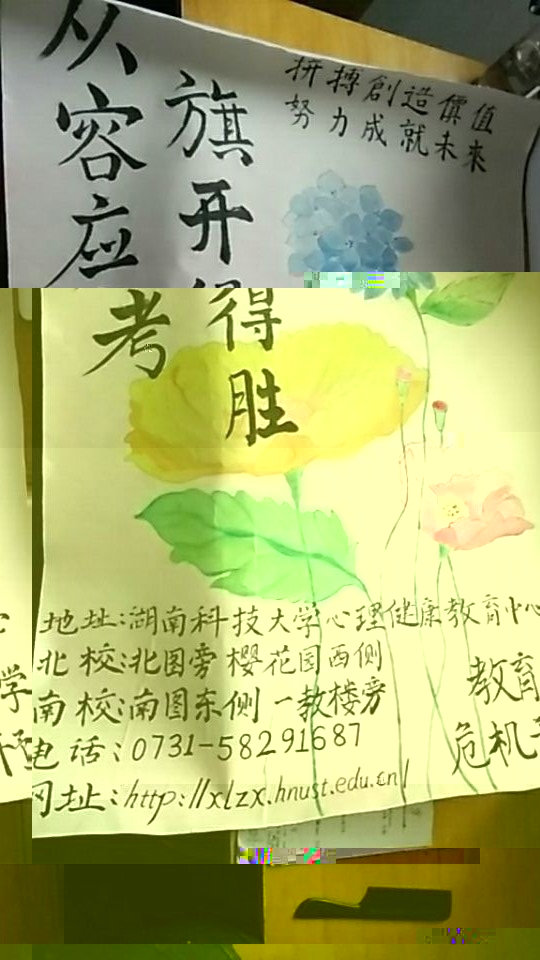 从容应考
旗开得胜
拼搏創造價值
努力成就未來
地址:湖南科技大学心理健康教育中心
北校:北图旁樱花园西侧
南校:南图东侧一教楼旁
电话:0731-58291687
网址:http://xlzx.hnust.edu.cn/
教育
危机
学